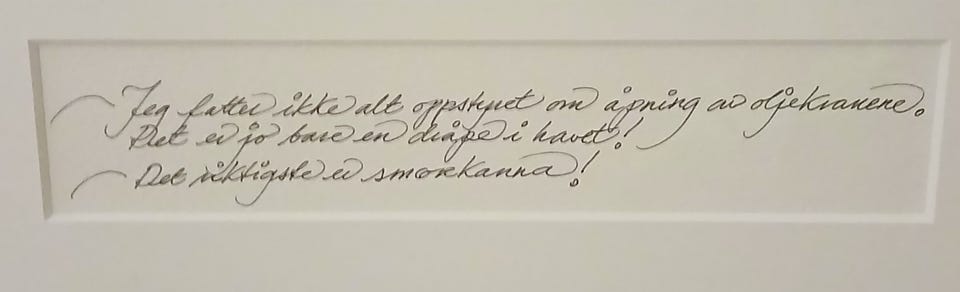 – Jeg fatter ikke alt oppstyret om åpning av oljekranene.
Det er jo bare en dråpe i havet!
– Det viktigste er smørekanna!